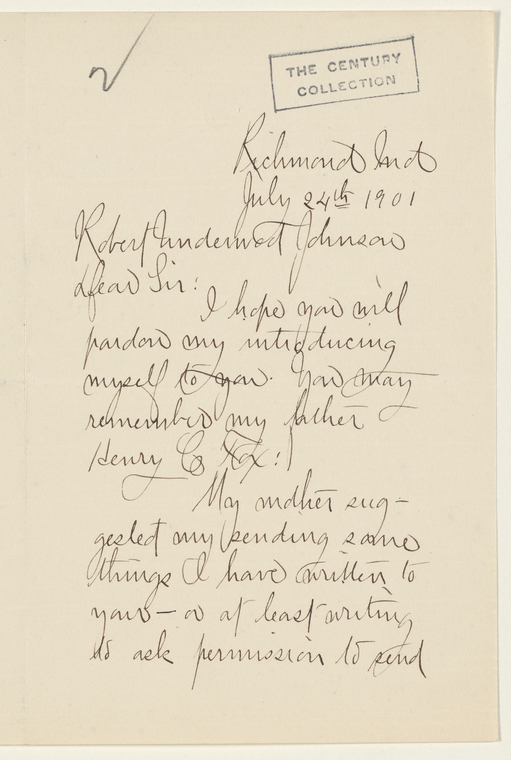 2
THE CENTURY
COLLECTION
Richmond Ind
July 24th 1901
Robert Underwood Johnson
Dear Sir:
I hope you will
pardon my introducing
myself to you. You may
remember my father
Henry C Fox:
My mother sug-
gested my sending some
things I have written to
you — or at least writing
to ask permission to send